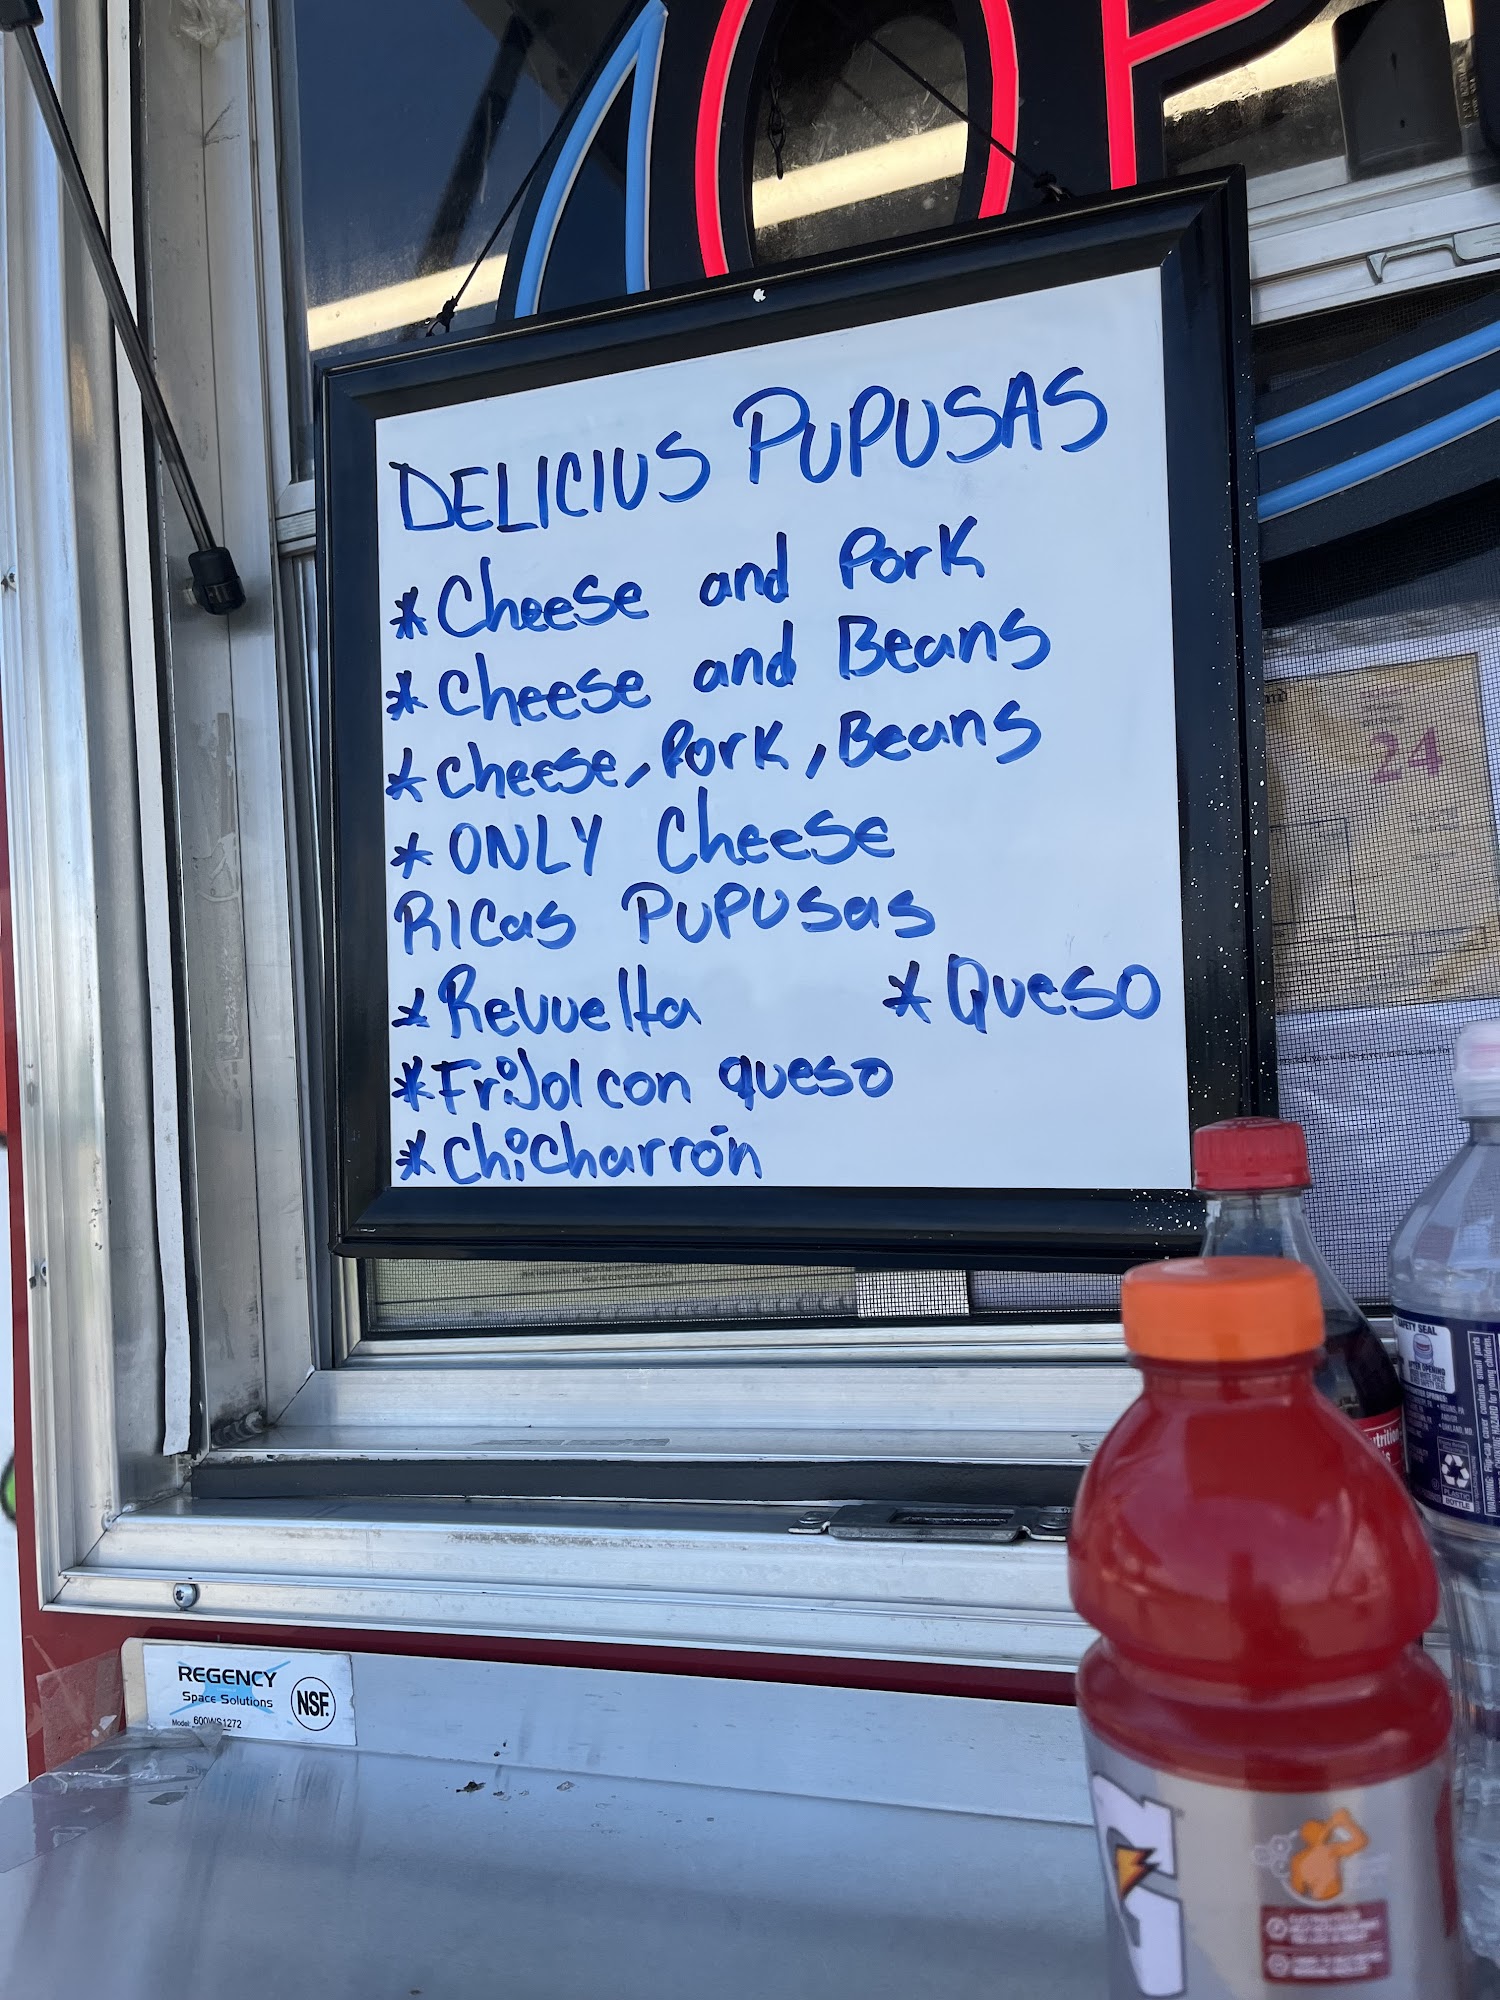 OP
DELICIUS PUPUSAS
*Cheese and Pork
*Cheese and Beans
*Cheese, Pork, Beans
*ONLY Cheese
RICas PUPUSas
*Revuelta *Queso
*FriJol con queso
*Chicharrón
24
SAFETY SEAL
PLASTIC
BOTTLE
REGENCY
Space Solutions
NSF.
Model: 600WS1272
G